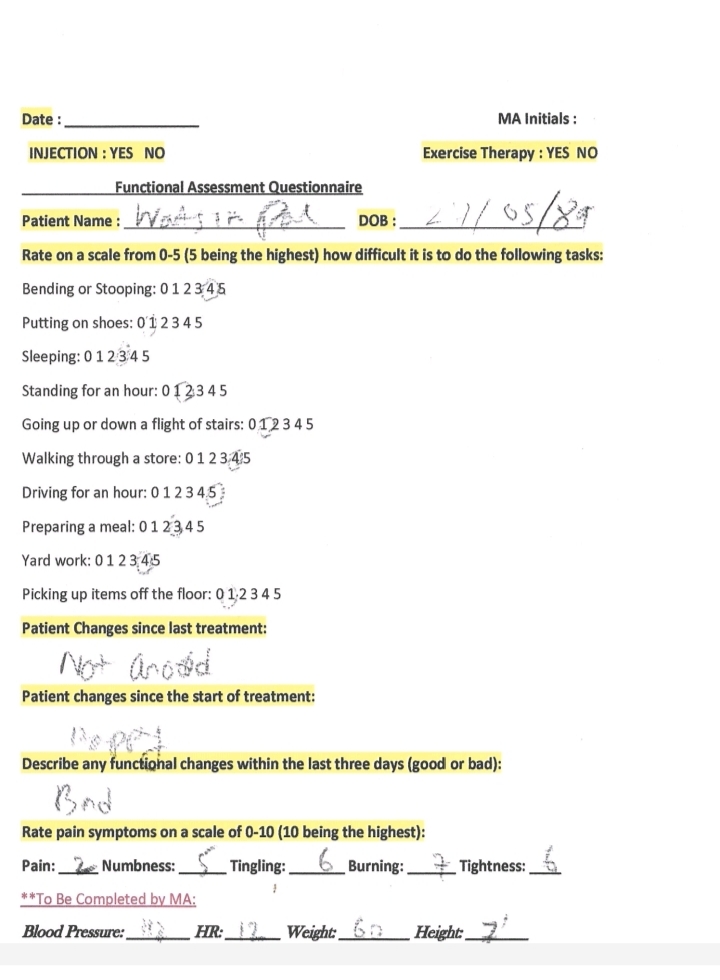 Date : ____________
MA Initials :
INJECTION : YES NO
Exercise Therapy : YES NO
Functional Assessment Questionnaire
Patient Name : DOB : /05/89
Rate on a scale from 0-5 (5 being the highest) how difficult it is to do the following tasks:
Bending or Stooping: 0 1 2 3 4 5
Putting on shoes: 0 1 2 3 4 5
Sleeping: 0 1 2 3 4 5
Standing for an hour: 0 1 2 3 4 5
Going up or down a flight of stairs: 0 1 2 3 4 5
Walking through a store: 0 1 2 3 4 5
Driving for an hour: 0 1 2 3 4 5
Preparing a meal: 0 1 2 3 4 5
Yard work: 0 1 2 3 4 5
Picking up items off the floor: 0 1 2 3 4 5
Patient Changes since last treatment:
Not
Patient changes since the start of treatment:
Describe any functional changes within the last three days (good or bad):
Bad
Rate pain symptoms on a scale of 0-10 (10 being the highest):
Pain: 2 Numbness: 5 Tingling: 6 Burning: 7 Tightness: 6
**To Be Completed by MA:
Blood Pressure: HR: 12 Weight: 60 Height: 7'